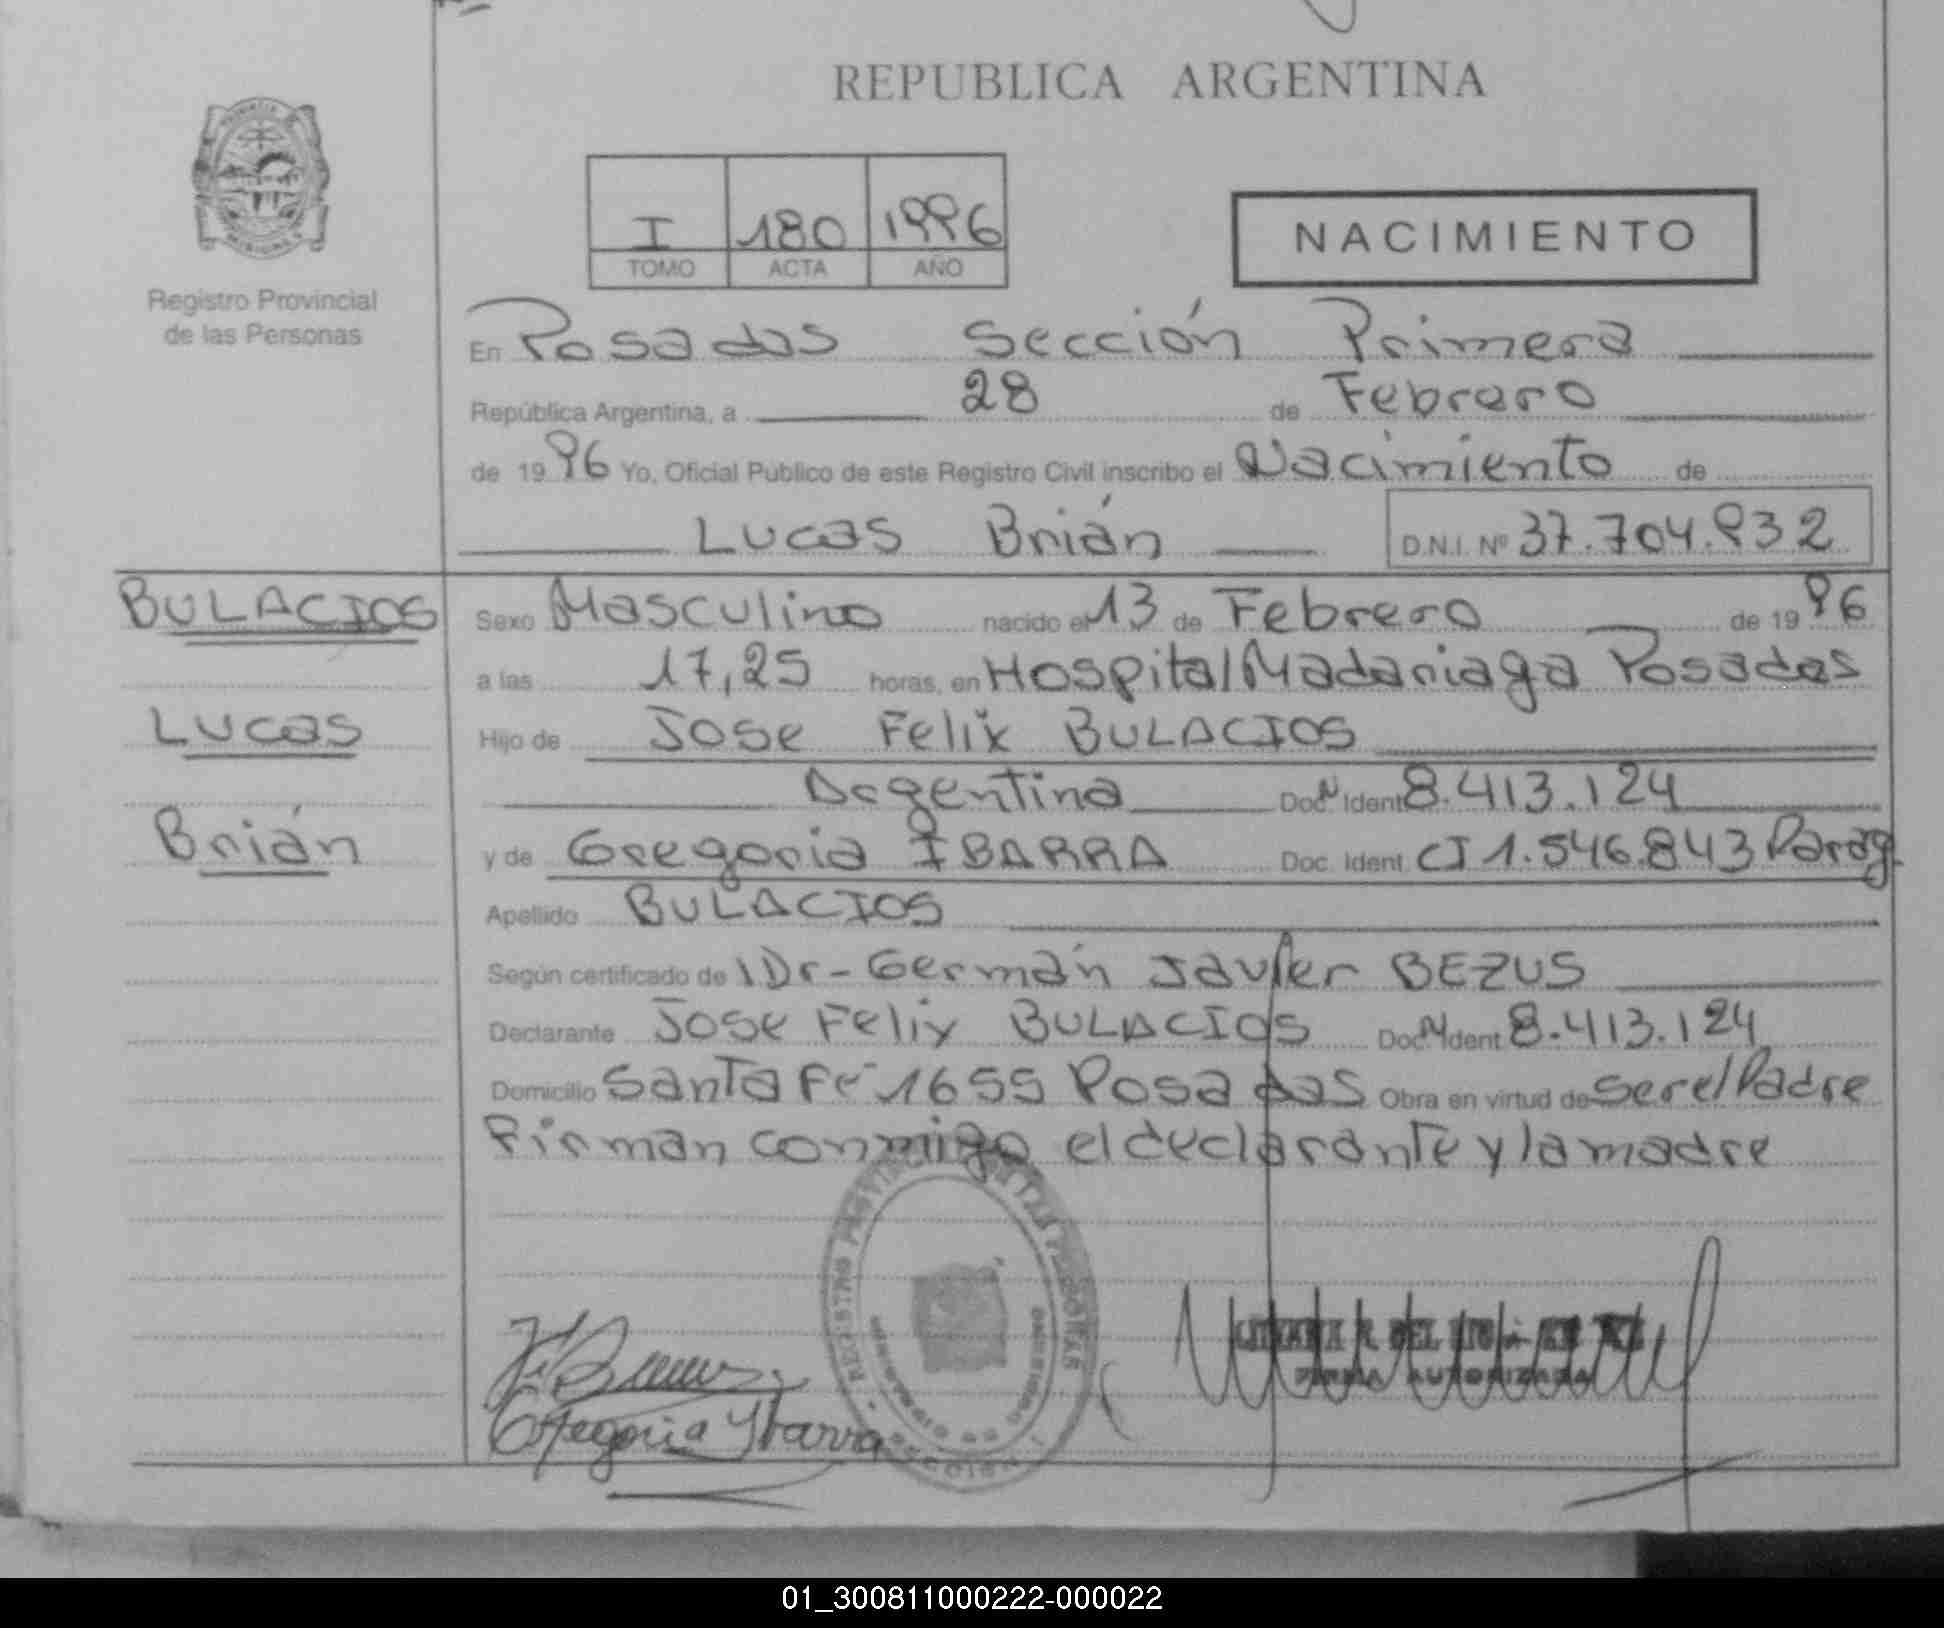 REPUBLICA ARGENTINA
I 180 1996
TOMO ACTA AÑO
NACIMIENTO
Registro Provincial
de las Personas
En Posadas Sección Primera
República Argentina, a 28 de Febrero
de 1996 Yo, Oficial Público de este Registro Civil inscribo el Nacimiento de
Lucas Brián D.N.I. Nº 37.704.932
BULACIOS
Lucas
Brián
Sexo Masculino nacido el 13 de Febrero de 1996
a las 17,25 horas, en Hospital Madariaga Posadas
Hijo de Jose Felix BULACIOS
Argentina Doc. Ident. 8.413.124
y de Gregoria IBARRA Doc. Ident. CI 1.546.843 Parag.
Apellido BULACIOS
Según certificado de Dr- Germán Javier BEZUS
Declarante Jose Felix BULACIOS Doc. Ident. 8.413.124
Domicilio Santa Fé 1655 Posadas Obra en virtud de ser el Padre
Firman conmigo el declarante y la madre
Gregoria Ybarra
FIRMA AUTORIZADA
01_300811000222-000022